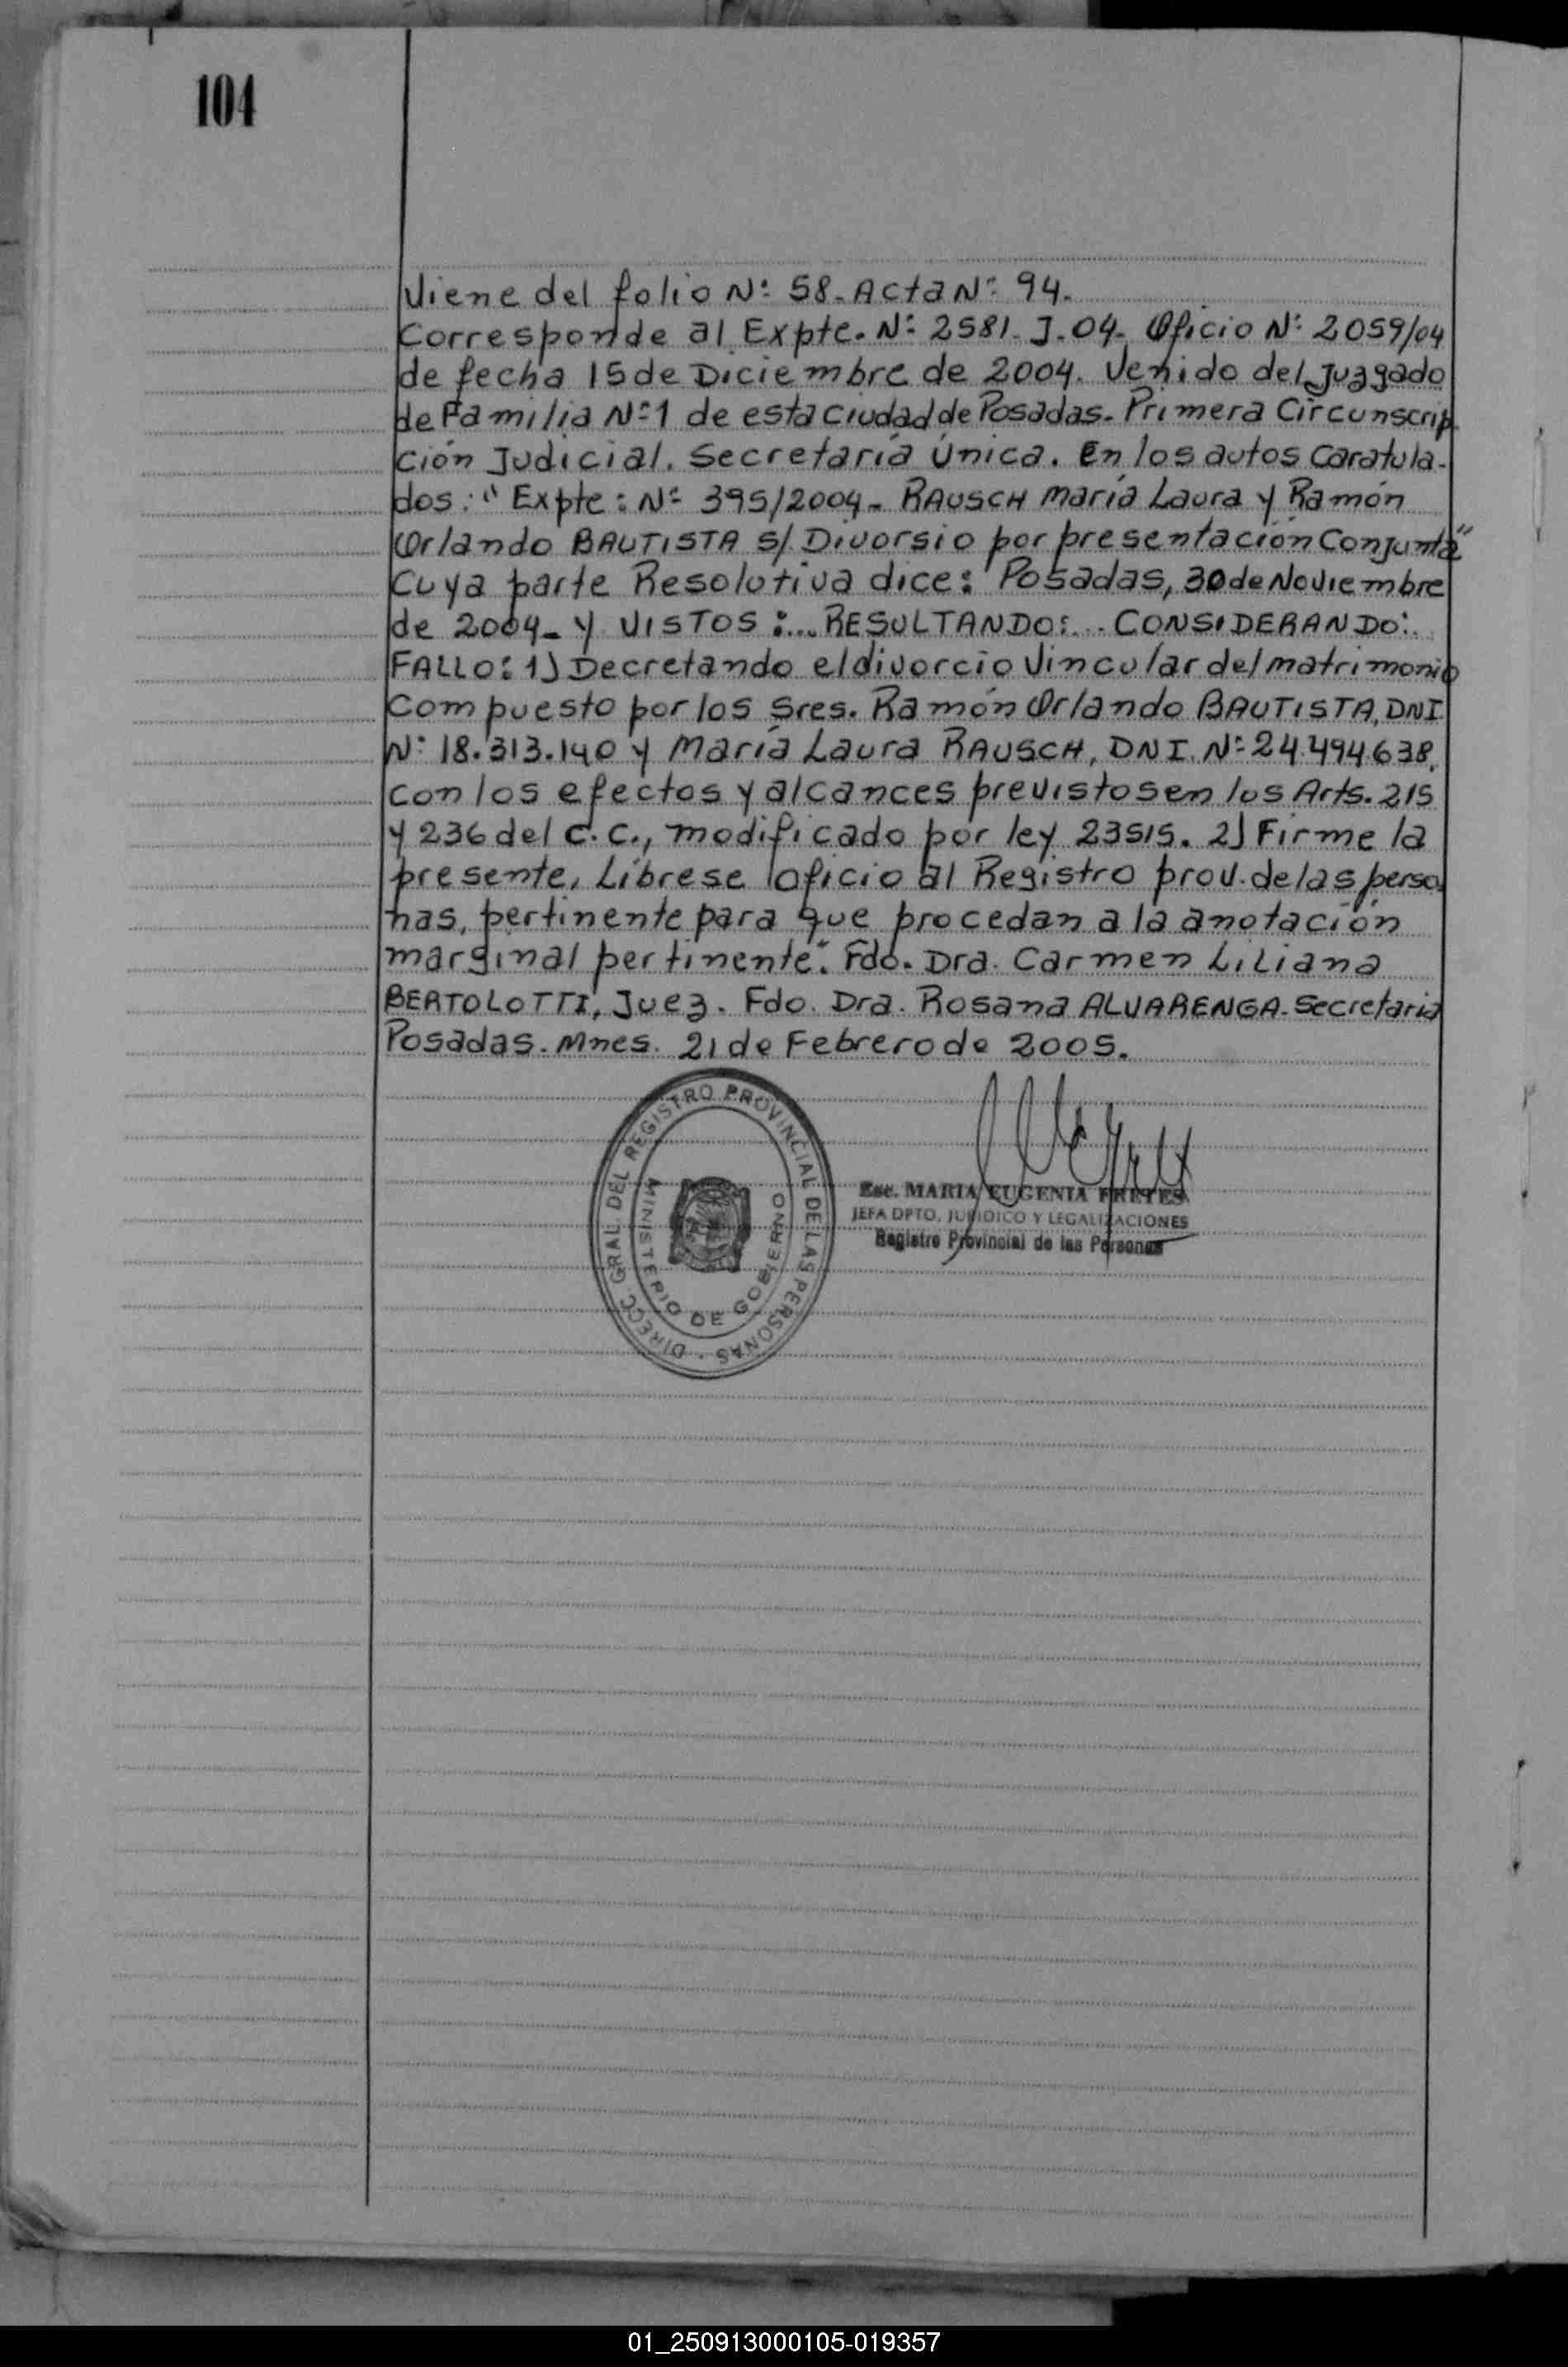 104
Viene del folio Nº 58. Acta Nº 94.
Corresponde al Expte. Nº 2581. J. 04. Oficio Nº 2059/04
de fecha 15 de Diciembre de 2004. Venido del Juzgado
de Familia Nº 1 de esta ciudad de Posadas. Primera Circunscrip
ción Judicial. Secretaría Única. En los autos Caratula-
dos: " Expte: Nº 395/2004 - RAUSCH María Laura y Ramón
Orlando BAUTISTA s/ Divorsio por presentación Conjunta"
Cuya parte Resolutiva dice: Posadas, 30 de Noviembre
de 2004 - Y VISTOS :... RESULTANDO:... CONSIDERANDO:.
FALLO: 1) Decretando el divorcio Vincular del matrimonio
Compuesto por los Sres. Ramón Orlando BAUTISTA, DNI
Nº 18.313.140 y María Laura RAUSCH, DNI. Nº 24.494.638,
con los efectos y alcances previstos en los Arts. 215
y 236 del C.C., modificado por ley 23515. 2) Firme la
presente, Líbrese oficio al Registro prov. de las perso
nas, pertinente para que procedan a la anotación
marginal pertinente". Fdo. Dra. Carmen Liliana
BERTOLOTTI, Juez. Fdo. Dra. Rosana ALVARENGA. Secretaria
Posadas. Mnes. 21 de Febrero de 2005.
DIRECC. GRAL. DEL REGISTRO PROVINCIAL DE LAS PERSONAS
MINISTERIO DE GOBIERNO
Esc. MARIA EUGENIA FRETES
JEFA DPTO. JURIDICO Y LEGALIZACIONES
Registro Provincial de las Personas
01_250913000105-019357